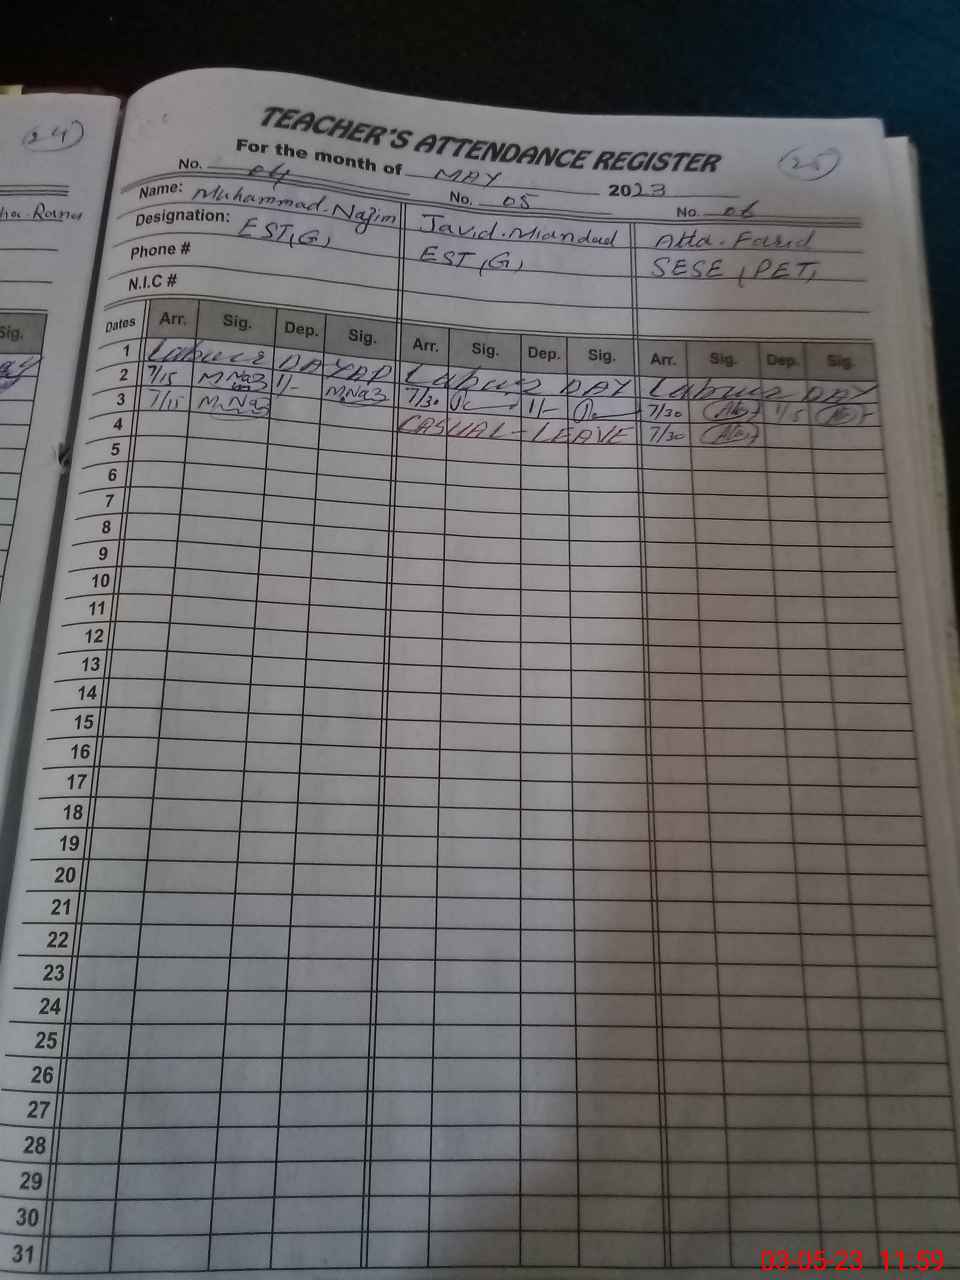 (24)
TEACHER'S ATTENDANCE REGISTER
(25)
For the month of MAY 2023
No. 04 No. 05 No. 06
Name: Muhammad. Nazim Javid. Miandad Atta. Farid
Designation: EST(G) EST(G) SESE (PET)
Phone #
N.I.C #
Dates Arr. Sig. Dep. Sig. Arr. Sig. Dep. Sig. Arr. Sig. Dep. Sig.
1 Labour DAY Labour DAY Labour DAY
2 7/15 M.Naz 1/- M.Naz 7/30 1/- 7/30 1/5
3 7/15 M.Naz CASUAL-LEAVE 7/30
4
5
6
7
8
9
10
11
12
13
14
15
16
17
18
19
20
21
22
23
24
25
26
27
28
29
30
31
Sig.
03-05-23 11:59